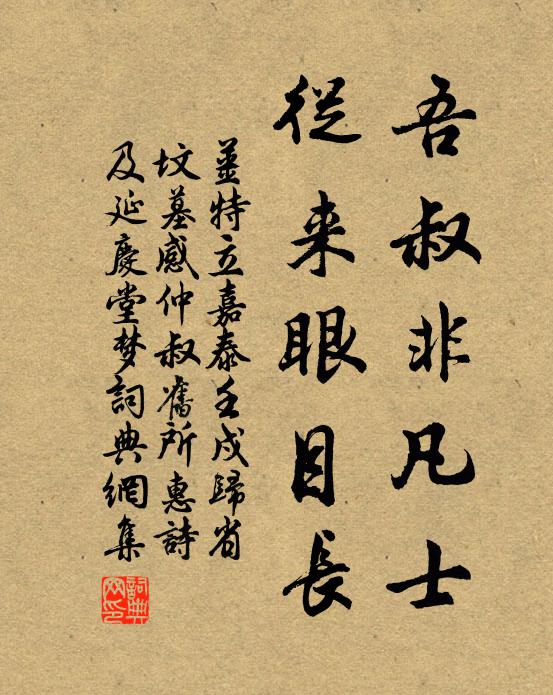 吾叔非凡士
從来眼目長
薑特立嘉泰壬戌歸省
坟墓感仲叔舊所惠詩
及延慶堂梦詞典網集
詞典网印